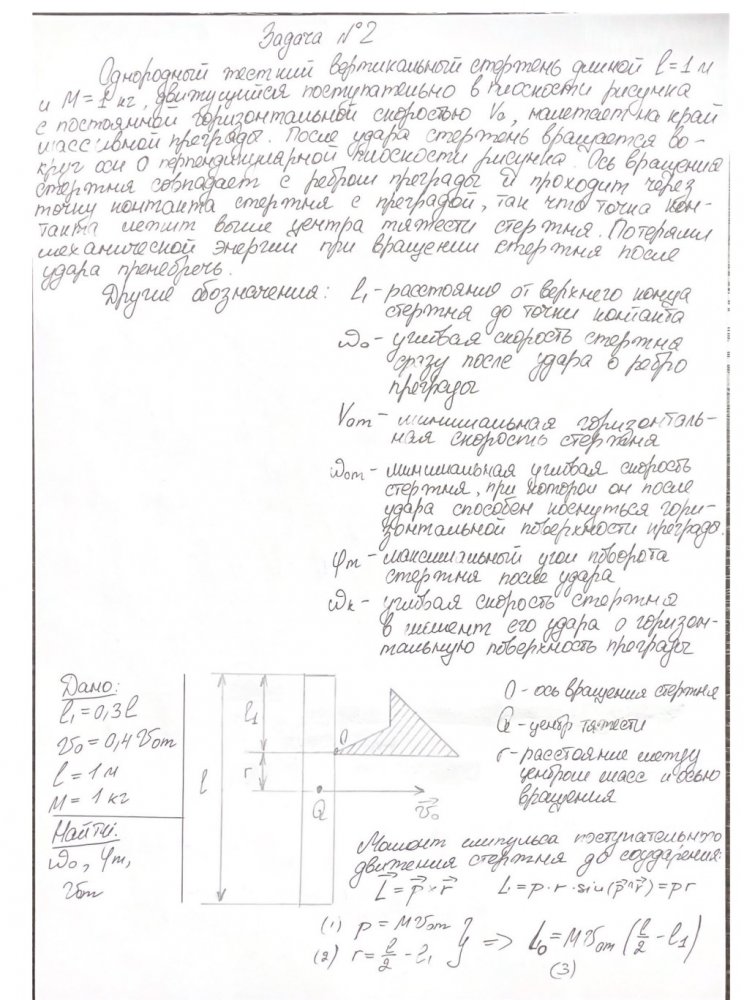 Задача №2
Однородный жесткий вертикальный стержень длиной l=1 м
и M=1 кг, движущийся поступательно в плоскости рисунка
с постоянной горизонтальной скоростью V₀, налетает на край
массивной преграды. После удара стержень вращается во-
круг оси O перпендикулярной плоскости рисунка. Ось вращения
стержня совпадает с ребром преграды и проходит через
точку контакта стержня с преградой, так что точка кон-
такта лежит выше центра тяжести стержня. Потерями
механической энергии при вращении стержня после
удара пренебречь.
Другие обозначения: l₁ - расстояния от верхнего конца
стержня до точки контакта
ω₀ - угловая скорость стержня
сразу после удара о ребро
преграды
V₀m - минимальная горизонталь-
ная скорость стержня
ω₀m - минимальная угловая скорость
стержня, при которой он после
удара способен коснуться гори-
зонтальной поверхности преграды.
φm - максимальный угол поворота
стержня после удара
ωк - угловая скорость стержня
в момент его удара о горизон-
тальную поверхность преграды
Дано:
l₁=0,3l
v₀=0,4v₀m
l=1м
M=1кг
Найти:
ω₀, φm,
v₀m
l
l₁
r
O
Q
v⃗₀
O - ось вращения стержня
Q - центр тяжести
r - расстояние между
центром масс и осью
вращения
Момент импульса поступательного
движения стержня до соударения:
L⃗ = p⃗ × r⃗ L = p·r·sin(p⃗^r⃗) = pr
(1) p = Mv₀m
(2) r = l/2 - l₁ } => L₀ = Mv₀m (l/2 - l₁)
(3)